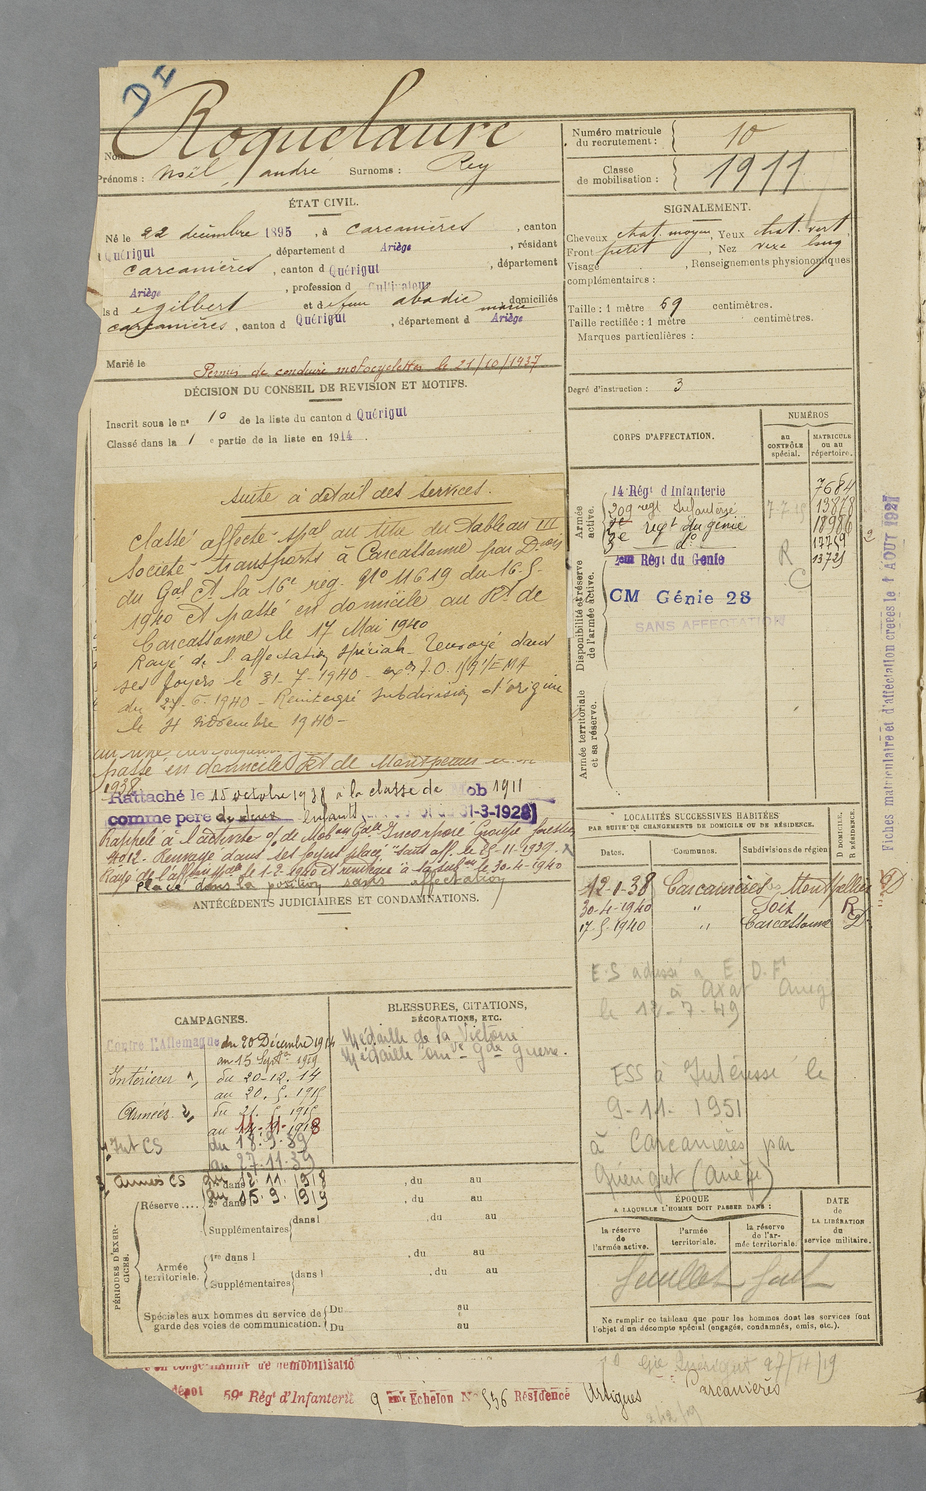 D4
Roquelaure
Nom
Prénoms : Noël, andré Surnoms : Rey
Numéro matricule
du recrutement : 10
Classe
de mobilisation : 1911
ÉTAT CIVIL.
Né le 22 décembre 1895, à Carcanières, canton
Quérigut, département d Ariège, résidant
Carcanières, canton d Quérigut, département
Ariège, profession d Cultivateur
ls d e gilbert et d e feue abadie marie domiciliés
Carcanières, canton d Quérigut, département d Ariège
Marié le
Permis de conduire motocyclettes le 21/10/1937
SIGNALEMENT.
Cheveux chat. moyen, Yeux chat. vert
Front petit, Nez vexe long
Visage , Renseignements physionomiques
complémentaires :
Taille : 1 mètre 69 centimètres.
Taille rectifiée : 1 mètre centimètres.
Marques particulières :
Degré d'instruction : 3
DÉCISION DU CONSEIL DE REVISION ET MOTIFS.
Inscrit sous le n° 10 de la liste du canton d Quérigut
Classé dans la 1 e partie de la liste en 1914.
suite à détail des services.
Classé affecté spal au titre du Tableau III
Société transports à Carcassonne par Don
du Gal Ct la 16e reg. N° 11619 du 16.5
1940 et passé en domicile au Rt de
Carcassonne le 17 Mai 1940
Rayé de l'affectation spéciale. Renvoyé dans
ses foyers le 31-7-1940
du 27-6-1940 - Réintégré subdivision d'origine
le 4 novembre 1940-
passé en domicile Rt de Montpellier
1938
Rattaché le 15 octobre 1938 à la classe de Mob 1911
comme père de deux enfants 31-3-1928)
Rappelé à l'activité Incorporé Groupe forestier
Renvoyé dans ses foyers placé sans aff. le 25-11-1939.
le 1-2-1940 et le 30-4-1940
Placé dans la position sans affectation
ANTÉCÉDENTS JUDICIAIRES ET CONDAMNATIONS.
CORPS D'AFFECTATION.
NUMÉROS
au
CONTRÔLE
spécial.
MATRICULE
ou au
répertoire.
Armée
active.
14 Régt d'Infanterie 7684
209 regt Infanterie 13878
2e regt du génie 18986
3e do 17759
2eme Régt du Genie 13725
R
C
Disponibilité et réserve
de l'armée active.
CM Génie 28
SANS AFFECTATION
Armée territoriale
et sa réserve.
Fiches matriculaire et d'affectation creées le 1 AOUT 1927
LOCALITÉS SUCCESSIVES HABITÉES
PAR SUITE DE CHANGEMENTS DE DOMICILE OU DE RÉSIDENCE.
D DOMICILE.
R RÉSIDENCE
Dates. Communes. Subdivisions de région
12-1-38 Carcanières Montpellier D
30-4-1940 " Foix R
17-5-1940 " Carcassonne D
E.S adressé à E.D.F
à Axat
le 12-7-49
ESS à Intéressé le
9-11-1951
à Carcanières par
Quérigut (Ariège)
CAMPAGNES.
Contre l'Allemagne du 20 Décembre 1914
au 15 Septbre 1919
Intérieur du 20-12.14
au 20.5.1915
Armées du 21.5.1915
au 11-11-1918
Int CS du 18.9.39
au 27-11-39
Armées CS du 12.11.1918
au 15.9.1919
BLESSURES, CITATIONS,
DÉCORATIONS, ETC.
Médaille de la Victoire
Médaille comve Gde Guerre.
PÉRIODES D'EXERCICES.
Réserve
1er dans l , du au
2e dans l , du au
Supplémentaires dans l , du au
Armée
territoriale.
1re dans l , du au
Supplémentaires dans l , du au
Spéciales aux hommes du service de
garde des voies de communication.
Du au
Du au
ÉPOQUE
A LAQUELLE L'HOMME DOIT PASSER DANS :
la réserve
de
l'armée active.
l'armée
territoriale.
la réserve
de l'armée territoriale.
DATE
de
LA LIBÉRATION
du
service militaire.
Ne remplir ce tableau que pour les hommes dont les services font
l'objet d'un décompte spécial (engagés, condamnés, omis, etc.).
en congé illimité de démobilisatio
dépot 59e Régt d'Infanterie 9 eme Echelon N° 536 Résidence Artigues
Quérigut 27/11/19
Carcanières